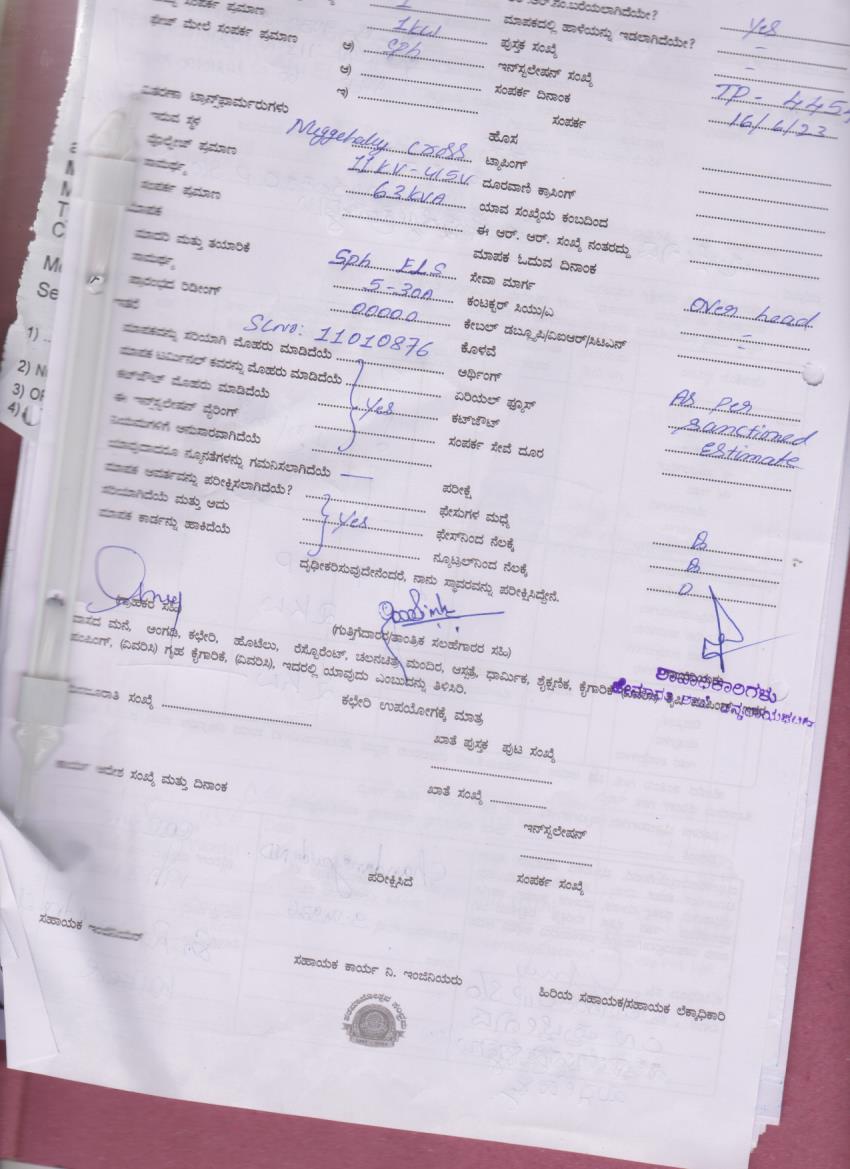 ಸಂಪರ್ಕ ಪ್ರಮಾಣ 1
ಆರ್.ಆರ್.ನಂ.ಬರೆಯಲಾಗಿದೆಯೇ? Yes
ಫೇಜ್ ಮೇಲೆ ಸಂಪರ್ಕ ಪ್ರಮಾಣ 1KW
ಮಾಪಕದಲ್ಲಿ ಹಾಳೆಯನ್ನು ಇಡಲಾಗಿದೆಯೇ? -
ಅ) Sph
ಪುಸ್ತಕ ಸಂಖ್ಯೆ -
ಆ)
ಇನ್‌ಸ್ಟಲೇಷನ್ ಸಂಖ್ಯೆ TP-445
ಇ)
ಸಂಪರ್ಕ ದಿನಾಂಕ 16/6/23
ವಿತರಣಾ ಟ್ರಾನ್ಸ್‌ಫಾರ್ಮರುಗಳು
ಸಂಪರ್ಕ
ಇರುವ ಸ್ಥಳ Nuggehally cross
ಹೊಸ
ವೋಲ್ಟೇಜ್ ಪ್ರಮಾಣ 11KV-415V
ಟ್ಯಾಪಿಂಗ್
ಸಾಮರ್ಥ್ಯ 63KVA
ದೂರವಾಣಿ ಕ್ರಾಸಿಂಗ್
ಸಂಪರ್ಕ ಪ್ರಮಾಣ
ಯಾವ ಸಂಖ್ಯೆಯ ಕಂಬದಿಂದ
ಮಾಪಕ
ಈ ಆರ್. ಆರ್. ಸಂಖ್ಯೆ ನಂತರದ್ದು
ಮಾಪಕ ಓದುವ ದಿನಾಂಕ
ಮಾದರಿ ಮತ್ತು ತಯಾರಿಕೆ Sph ELS
ಸೇವಾ ಮಾರ್ಗ over head
ಸಾಮರ್ಥ್ಯ 5-30A
ಕಂಟಕ್ಟರ್ ಸಿಯು/ಎ -
ಪ್ರಾರಂಭದ ರಿಡೀಂಗ್ 00000
ಕೇಬಲ್ ಡಬ್ಲ್ಯೂಪಿ/ಎಐಆರ್/ಸಿಟಿಎನ್ -
ಇತರೆ Slno: 11010876
ಕೊಳವೆ
ಮಾಪಕವನ್ನು ಸರಿಯಾಗಿ ಮೊಹರು ಮಾಡಿದೆಯೆ
ಅರ್ಥಿಂಗ್
ಮಾಪಕ ಟರ್ಮಿನಲ್ ಕವರನ್ನು ಮೊಹರು ಮಾಡಿದೆಯೆ
ಏರಿಯಲ್ ಫ್ಯೂಸ್ As per
ಕಟ್‌ಔಟ್ ಮೊಹರು ಮಾಡಿದೆಯೆ Yes
ಕಟ್‌ಔಟ್ sanctioned
ಈ ಇನ್‌ಸ್ಟಲೇಷನ್ ವೈರಿಂಗ್
ಸಂಪರ್ಕ ಸೇವೆ ದೂರ estimate
ನಿಯಮಗಳಿಗೆ ಅನುಸಾರವಾಗಿದೆಯೆ
ಯಾವುದಾದರೂ ನ್ಯೂನತೆಗಳನ್ನು ಗಮನಿಸಲಾಗಿದೆಯೆ —
ಪರೀಕ್ಷೆ
ಮಾಪಕ ಆವರ್ತವನ್ನು ಪರೀಕ್ಷಿಸಲಾಗಿದೆಯೆ?
ಫೇಸುಗಳ ಮಧ್ಯೆ
ಸರಿಯಾಗಿದೆಯೆ ಮತ್ತು ಅದು Yes
ಫೇಸ್‌ನಿಂದ ನೆಲಕ್ಕೆ
ಮಾಪಕ ಕಾರ್ಡನ್ನು ಹಾಕಿದೆಯೆ
ನ್ಯೂಟ್ರಲ್‌ನಿಂದ ನೆಲಕ್ಕೆ 0
ದೃಢೀಕರಿಸುವುದೇನೆಂದರೆ, ನಾನು ಸ್ಥಾವರವನ್ನು ಪರೀಕ್ಷಿಸಿದ್ದೇನೆ.
(ಗ್ರಾಹಕರ ಸಹಿ)
(ಗುತ್ತಿಗೆದಾರರ/ತಾಂತ್ರಿಕ ಸಲಹೆಗಾರರ ಸಹಿ)
ಶಾಖಾಧಿಕಾರಿಗಳು
ವಾಸದ ಮನೆ, ಅಂಗಡಿ, ಕಛೇರಿ, ಹೊಟೆಲು, ರೆಸ್ಟೊರೆಂಟ್, ಚಲನಚಿತ್ರ ಮಂದಿರ, ಆಸ್ಪತ್ರೆ, ಧಾರ್ಮಿಕ, ಶೈಕ್ಷಣಿಕ, ಕೈಗಾರಿಕೆ
ಪಂಪಿಂಗ್, (ವಿವರಿಸಿ) ಗೃಹ ಕೈಗಾರಿಕೆ, (ವಿವರಿಸಿ), ಇದರಲ್ಲಿ ಯಾವುದು ಎಂಬುದನ್ನು ತಿಳಿಸಿರಿ.
ಕಛೇರಿ ಉಪಯೋಗಕ್ಕೆ ಮಾತ್ರ
ಸಂಖ್ಯೆ
ಖಾತೆ ಪುಸ್ತಕ ಪುಟ ಸಂಖ್ಯೆ
ಆದೇಶ ಸಂಖ್ಯೆ ಮತ್ತು ದಿನಾಂಕ
ಖಾತೆ ಸಂಖ್ಯೆ
ಇನ್‌ಸ್ಟಲೇಷನ್
ಪರೀಕ್ಷಿಸಿದೆ
ಸಂಪರ್ಕ ಸಂಖ್ಯೆ
ಸಹಾಯಕ ಇಂಜಿನಿಯರ್
ಸಹಾಯಕ ಕಾರ್ಯ ನಿ. ಇಂಜಿನಿಯರು
ಹಿರಿಯ ಸಹಾಯಕ/ಸಹಾಯಕ ಲೆಕ್ಕಾಧಿಕಾರಿ
1)
2) N
3) OF
4)